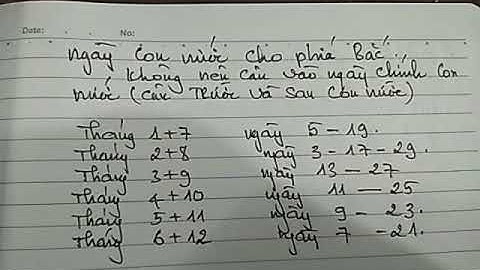 Date: No:
Ngày con nước cho phía Bắc.
Không nên câu vào ngày chính con
nước (câu trước và sau con nước)
Tháng 1+7 ngày 5 - 19.
Tháng 2+8 ngày 3 - 17 - 29.
Tháng 3+9 ngày 13 - 27
Tháng 4+10 ngày 11 - 25
Tháng 5+11 ngày 9 - 23.
Tháng 6+12 ngày 7 - 21.